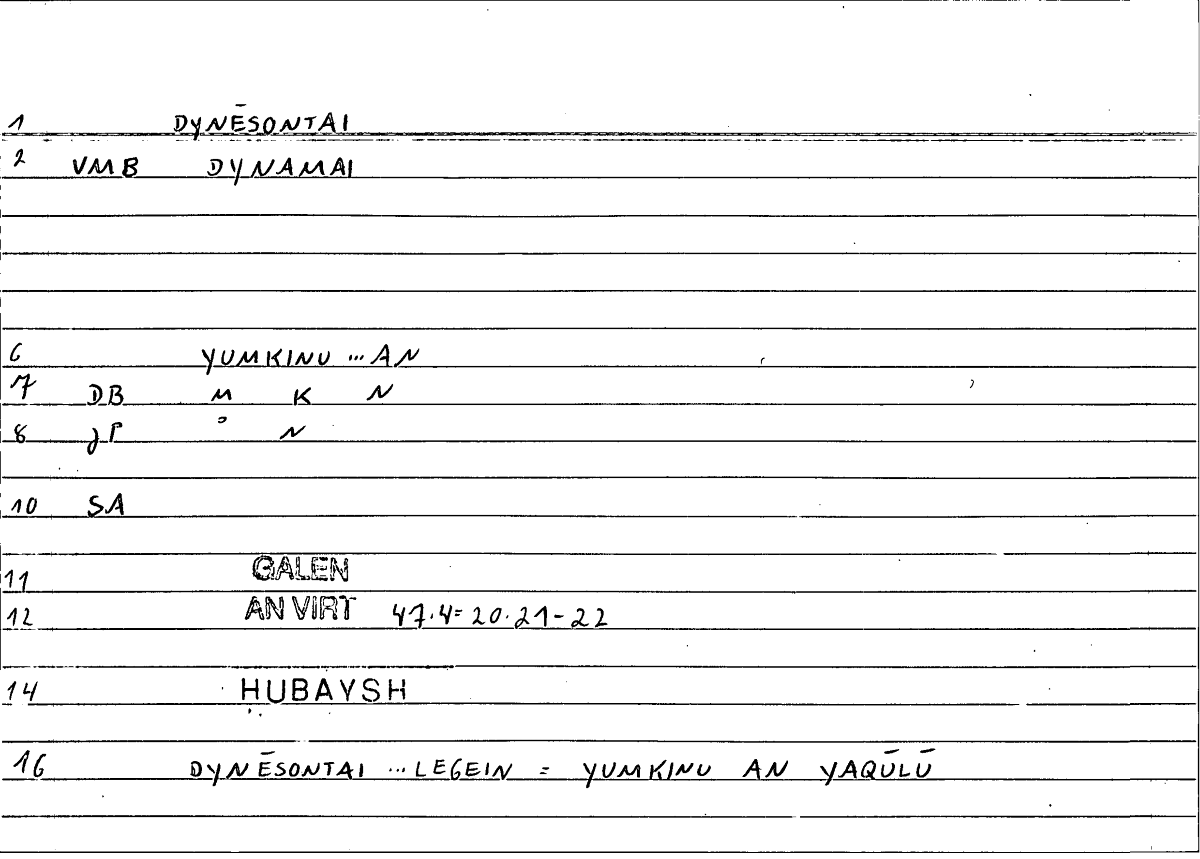 1 DYNĒSONTAI
2 VMB DYNAMAI
6 YUMKINU ... AN
7 DB M K N
8 JP N
10 SA
11 GALEN
12 AN VIRT 47.4=20.21-22
14 HUBAYSH
16 DYNĒSONTAI ... LEGEIN = YUMKINU AN YAQŪLŪ